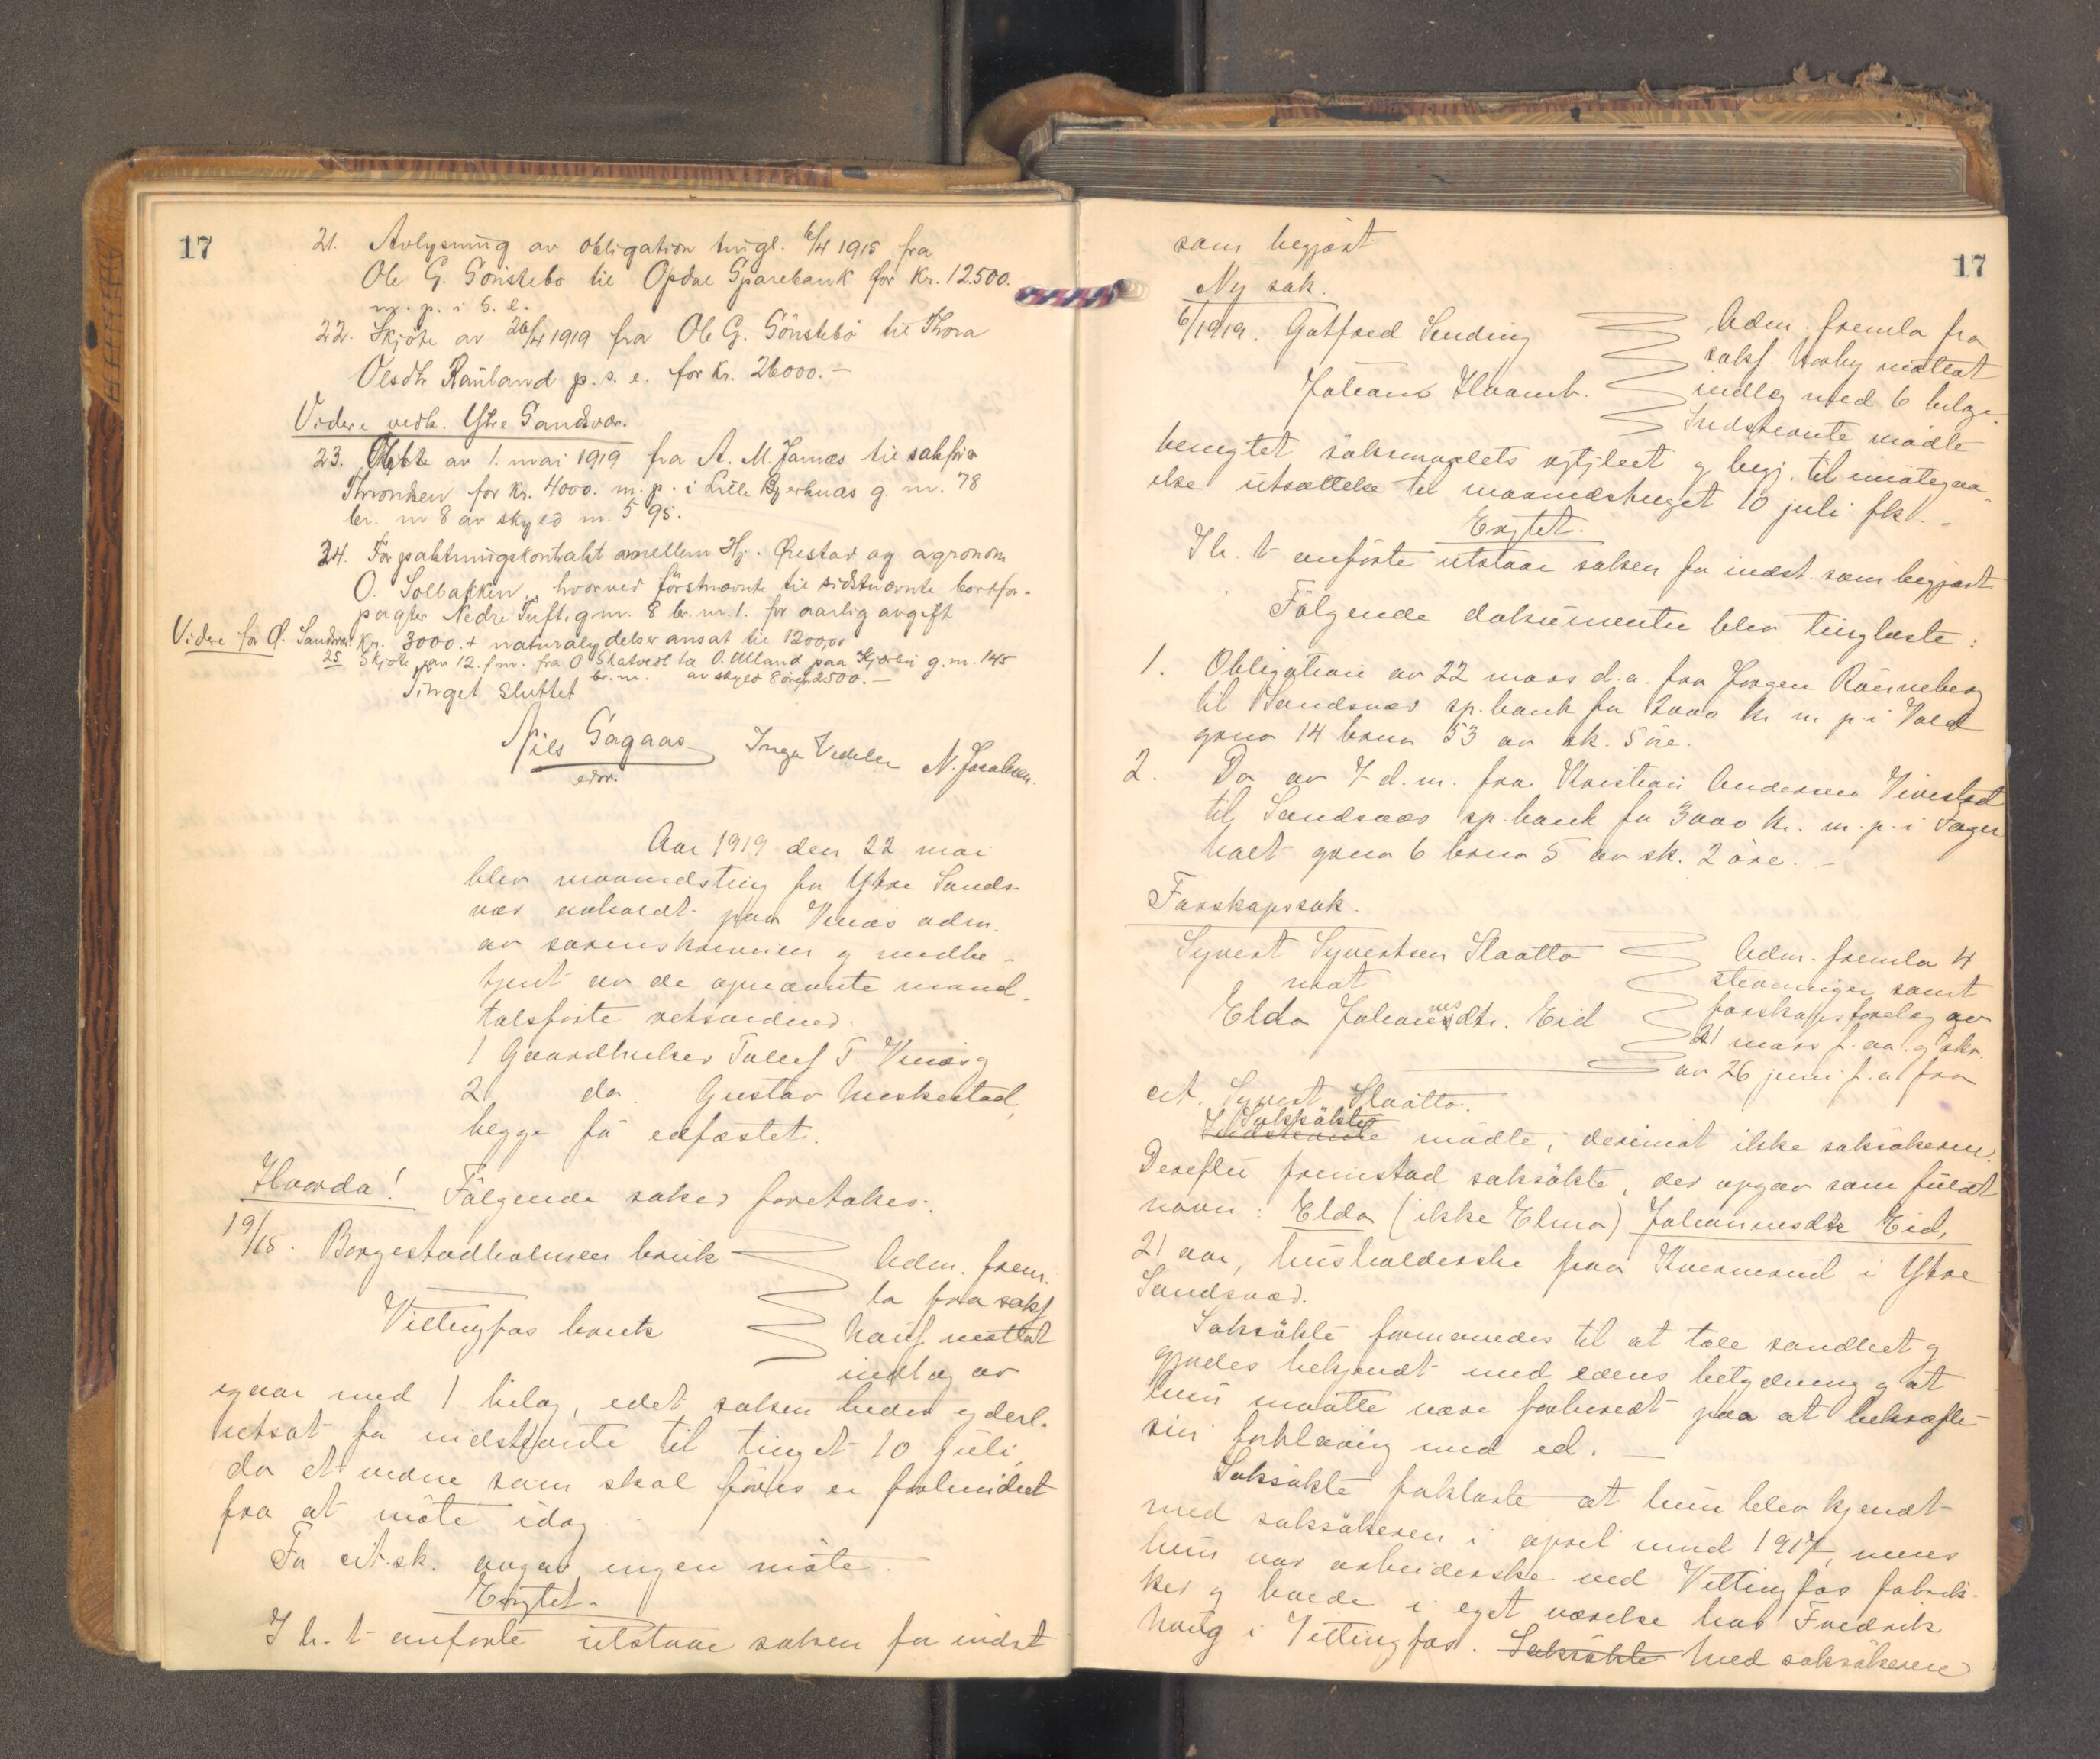 17
21. Avlysning av obligation tingl. 6/4 1915 fra
Ole G. Sönstebö til Opdal Sparebank for kr. 12500.
m. p. i s. e.
22. Skjöte av 26/4 1919 fra Ole G. Sönstebö til Thora
Olsdtr Rauland p. s. e. for kr. 26000.-
Videre vedk. Ytre Sandsvær.
23. Skjöte av 1. mai 1919 fra A. M. Jarnæs til sakfrer
Thronsen for kr. 4000. m. p. i Lille Bjerknæs g. nr. 78
br. nr 8 av skyld m. 5.95.
24. Forpaktningskontrakt mellem Hj. Ørestav og agronom
O. Solbakken, hvorved förstnævnte til sidstnævnte bortfor-
pagter Nedre Tuft g nr. 8 br. nr. 1. for aarlig avgift
Videre for Ø. Sandsvær. kr. 3000.+ naturalydelser ansat til 1200,00
25 Skjöte av 12. f m. fra O Skatvedt til O. Ulland paa g. nr. 145
br. nr. av skyld 8 öre 2500.-
Tinget sluttet
Nils Gagaas Inga Vedeler N. Jacobsen.
edsv.
Aar 1919 den 22 mai
blev maanedsting for Ytre Sands-
vær avholdt paa Vinæs adm.
av sorenskriveren og medbe-
tjent av de opnævnte mand-
talsförte retsvidner
1 Gaardbruker Tollef T. Vinæs og
2 do. Gustav Meskestad,
begge fö edfæstet.
Hvorda! Fölgende saker foretokes:
19/15. Borgestadholmen bruk
Adm. frem-
la fra sakf
Vittingfos bruk
Hauf mottat
indlæg av
igaar med 1 bilag, idet saken bedes yderl.
utsat for indstevnte til tinget 10 juli,
da et vidne som skal föres er forhindret
fra at möte idag.
For cit.sk. avgav ingen möte.
Eragtet.
I h. t. anförte utstaar saken for indst
17
som begjært
Ny sak.
6/1919. Gotfred Sending
Adm. fremla fra
sakf. mottat
Johans Hvamb.
indlæg med 6 bilage.
Indstevnte mödte
benegtet söksmaalets rigtighet og begj. til imötegaa-
else utsættelse til maanedstinget 10 juli fk. -
Eragtet.
I h. t. anförte utstaar saken for indst. som begjært
Fölgende dokumenter blev tinglæste:
1. Obligation av 22 mars d. a. fra Jørgen Rønneberg
til Sandsvær sp. bank for 2000 kr m. p i Vold
grnr 14 brnr 53 av sk. 5 öre.
2. Do av 7 d. m. fra Kristian Andersen Vivestad
til Sandsvær sp. bank for 3000 kr. m. p. i Teger
holt grnr 6 brnr 5 av sk. 2 öre. -
Farskapssak.
Syvert Syvertsen Slaatto
Adm. fremla 4
mot
stevninger samt
Elda Johannesdtr. Eid
farskapsforelæg av
21 mars f. aa. og skr.
av 26 juni f. a. fra
cit. Syvert Slaatto.
Saksökte
Indstevnte mödte, derimot ikke saksökeren.
Derefter fremstod saksökte, der opgav som fuldt
navn: Elda (ikke Elma) Johannesdtr Eid,
21 aar, husholderske paa Kvermerud i Ytre
Sandsvær.
Saksökte formanedes til at tale sandhet og
gjordes bekjendt med edens betydning og at
hun maatte være forberedt paa at bekræfte
sin forklaring med ed. -
Saksökte forklarte at hun blev kjendt
med saksökeren i april mnd 1917, mens
hun var arbeiderske ved Vittingfos fabrik-
ker og boede i eget værelse hos Fredrik
Haug i Vittingfos. Saksökte Med saksökeren